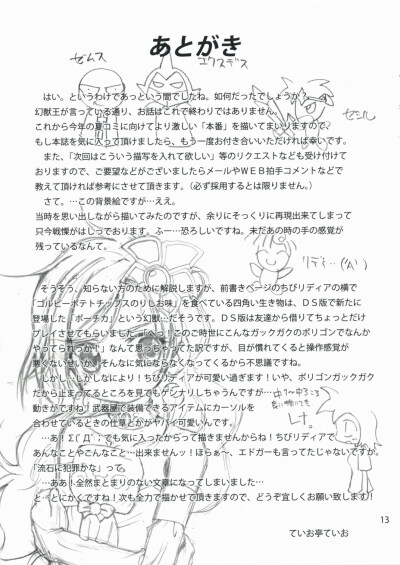 あとがき
ゼムス
エクスデス
セシル
はい。というわけであっという間でしたね。如何だったでしょうか？
幻獣王が言っている通り、お話はこれで終わりではありません。
これから今年の夏コミに向けてより激しい「本番」を描いてまいりますので、
もし本誌を気に入って頂けましたら、もう一度お付き合いいただければ幸いです。
また、「次回はこういう描写を入れて欲しい」等のリクエストなども受け付けて
おりますので、ご要望などがございましたらメールやWEB拍手コメントなどで
教えて頂ければ参考にさせて頂きます。（必ず採用するとは限りません。）
さて。…この背景絵ですが…ええ。
当時を思い出しながら描いてみたのですが、余りにそっくりに再現出来てしまって
只今戦慄がはしっております。ふー…恐ろしいですね。未だあの時の手の感覚が
残っているなんて。
そうそう、知らない方のために解説しますが、前書きページのちびリディアの横で
「ゴルビーポテトチップスのりしお味」を食べている四角い生き物は、DS版で新たに
登場した「ポーチカ」という幻獣…だそうです。DS版は友達から借りてちょっとだけ
プレイさせてもらいました。「へっ！このご時世にこんなガックガクのポリゴンでなんか
やってられっか！」なんて思っちゃってた訳ですが、目が慣れてくると操作感覚が
悪くないせいか、そんなに気にならなくなってくるから不思議ですね。
しかし…しかしなにより！ちびリディアが可愛過ぎます！いや、ポリゴンガックガク
だから止まってるところを見てもゲンナリしちゃうんですけど、
動きがですね！武器屋で装備できるアイテムにカーソルを
合わせているときの仕草とかがヤバイ可愛いんです。
…あ！Σ(´Д｀;でも気に入ったからって描きませんからね！ちびリディアで
あんなことやこんなこと…出来ませんッ！ほらぁ～、エドガーも言ってたじゃないですか。
「流石に犯罪かな」って。
…ああ！全然まとまりのない文章になってしまいました…
と…とにかくですね！次も全力で描かせて頂きますので、どうぞ宜しくお願い致します！
13
ていお亭ていお